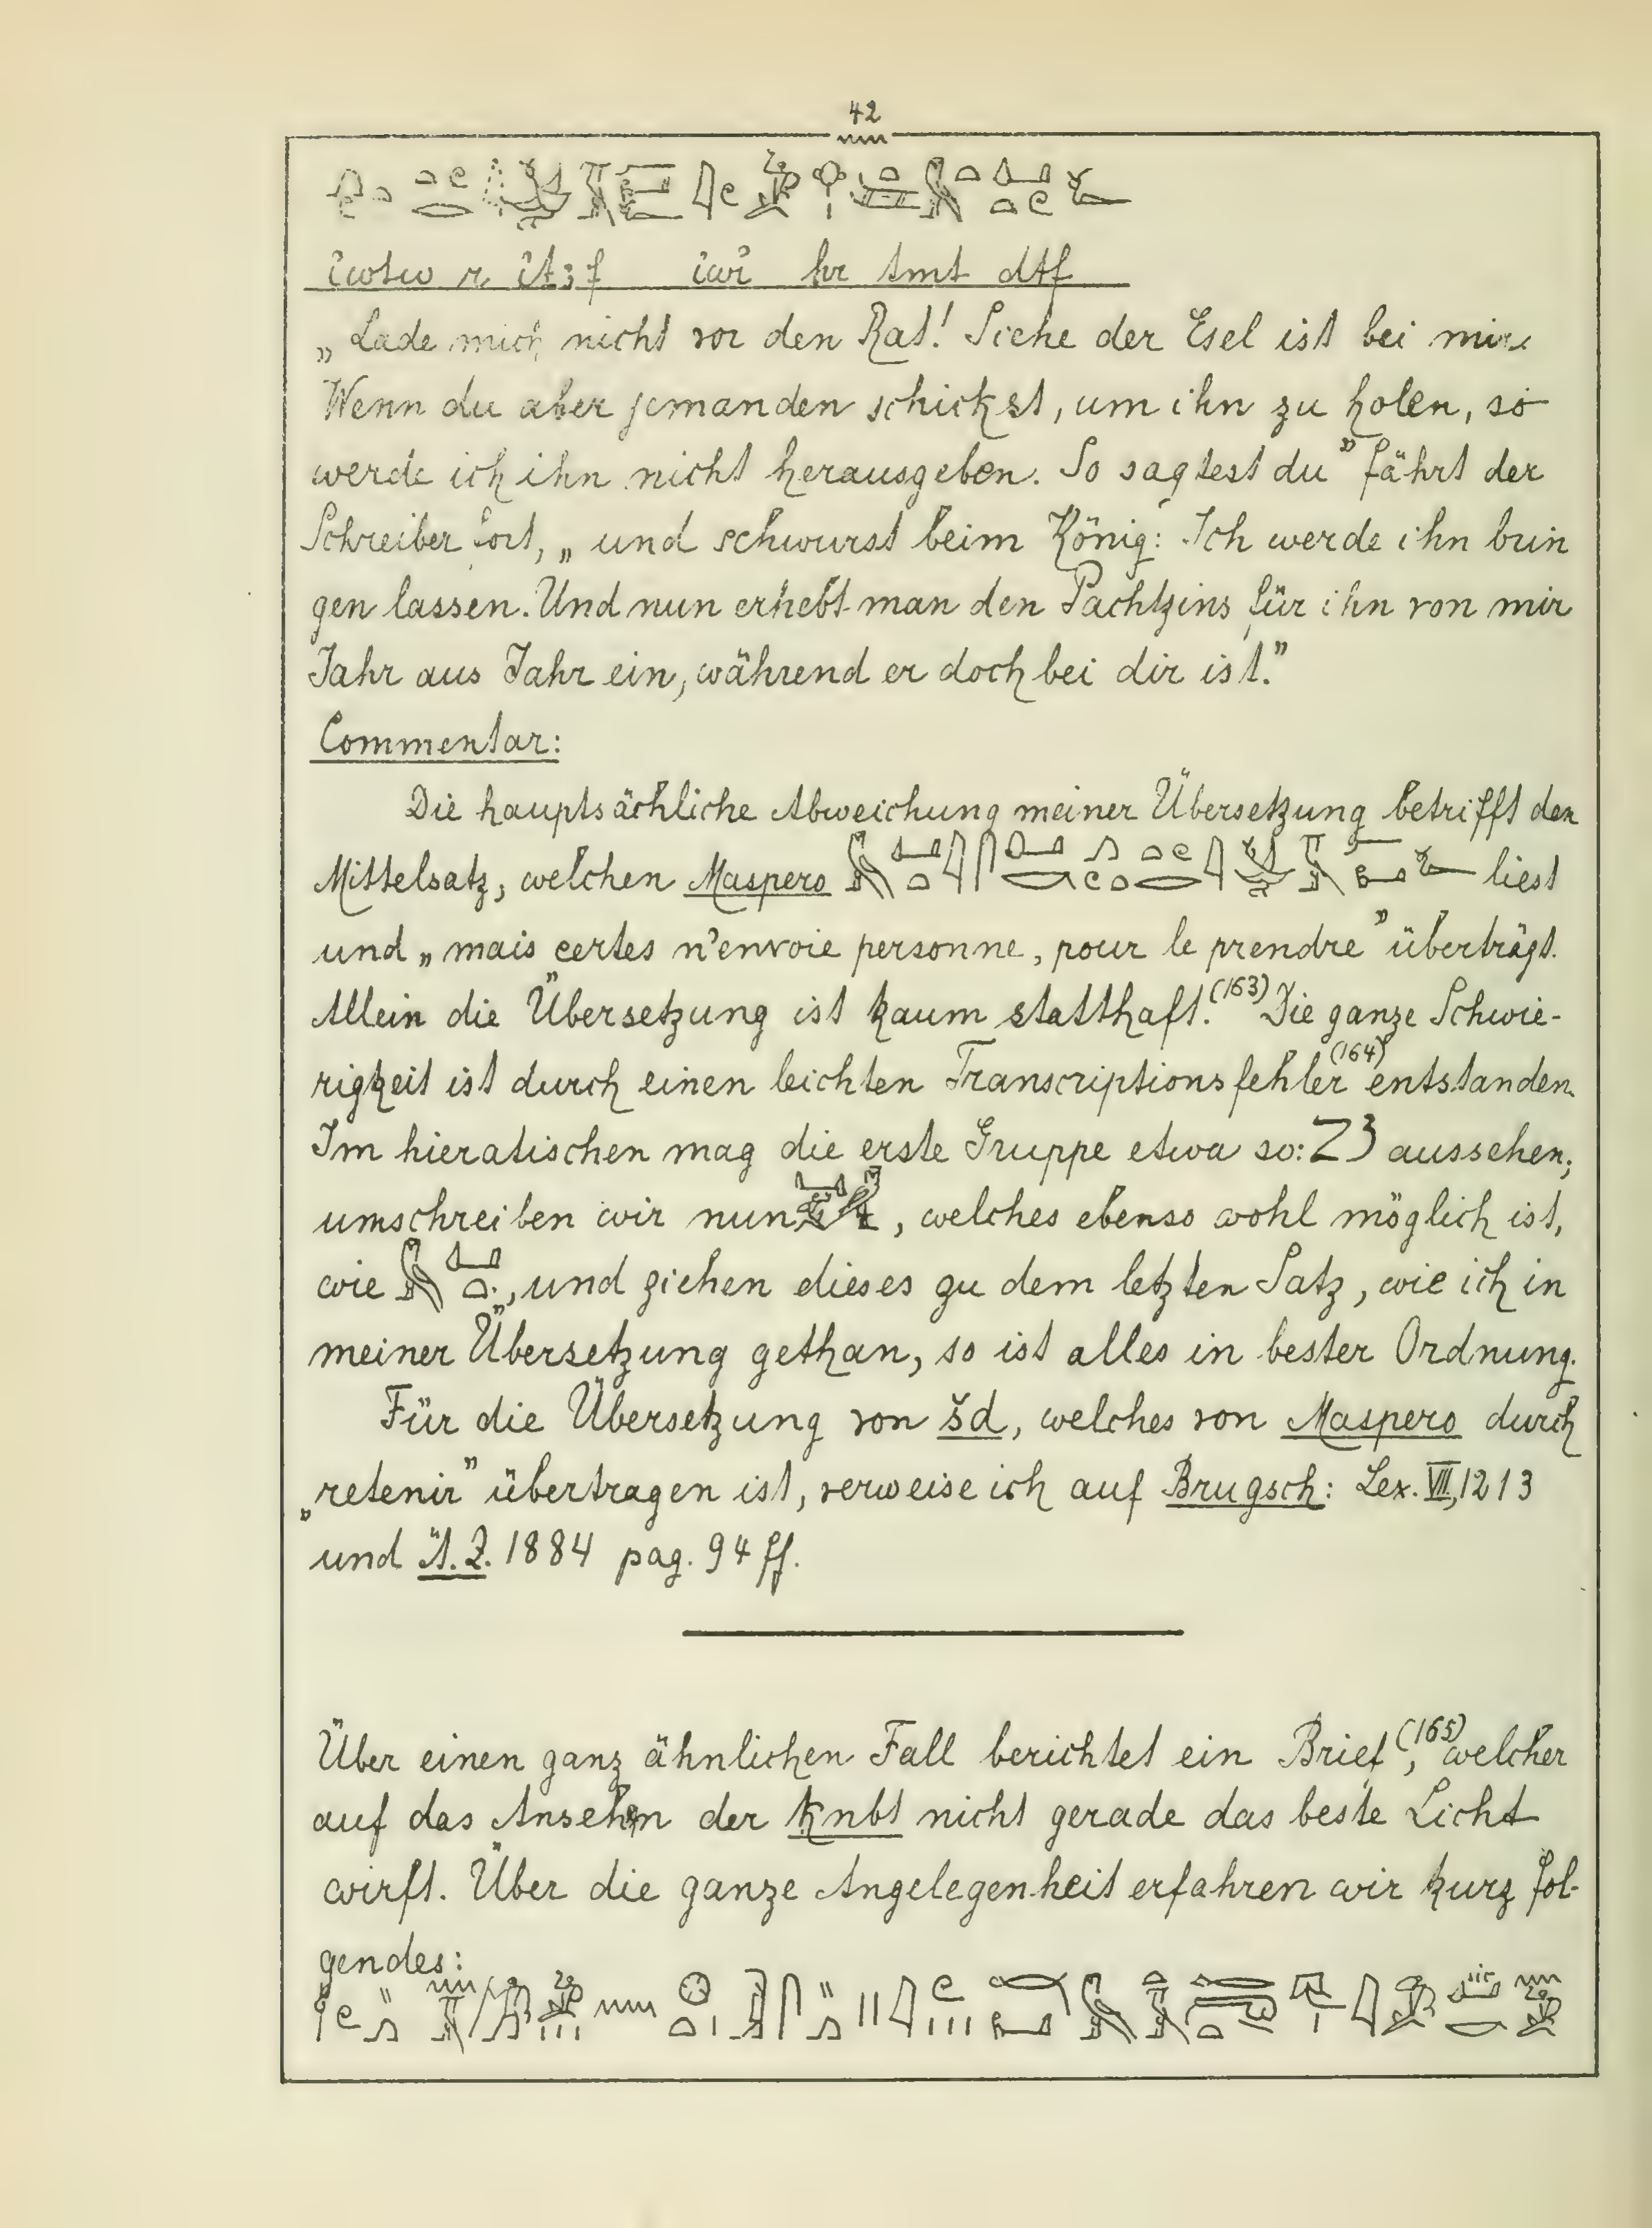 42
iwtw r iṯꜣf iwi̓ ḥr tmt dtf
„Lade mich nicht vor den Rat! Siehe der Esel ist bei mir.
Wenn du aber jemanden schickst, um ihn zu holen, so
werde ich ihn nicht herausgeben. So sagtest du” fährt der
Schreiber fort, „und schwurst beim König: Ich werde ihn brin
gen lassen. Und nun erhebt man den Pachtzins für ihn von mir
Jahr aus Jahr ein, während er doch bei dir ist.”
Commentar:
Die hauptsächliche Abweichung meiner Übersetzung betrifft den
Mittelsatz, welchen Maspero liest
und „mais certes n'envoie personne, pour le prendre” überträgt.
Allein die Übersetzung ist kaum statthaft.(163) Die ganze Schwie-
rigkeit ist durch einen leichten Transcriptionsfehler(164) entstanden.
Im hieratischen mag die erste Gruppe etwa so: aussehen;
umschreiben wir nun , welches ebenso wohl möglich ist,
wie , und ziehen dieses zu dem letzten Satz, wie ich in
meiner Übersetzung gethan, so ist alles in bester Ordnung.
Für die Übersetzung von šd, welches von Maspero durch
„retenir” übertragen ist, verweise ich auf Brugsch: Lex. VII, 1213
und Ä.Z. 1884 pag. 94 ff.
Über einen ganz ähnlichen Fall berichtet ein Brief(165), welcher
auf das Ansehen der knbt nicht gerade das beste Licht
wirft. Über die ganze Angelegenheit erfahren wir kurz fol-
gendes: